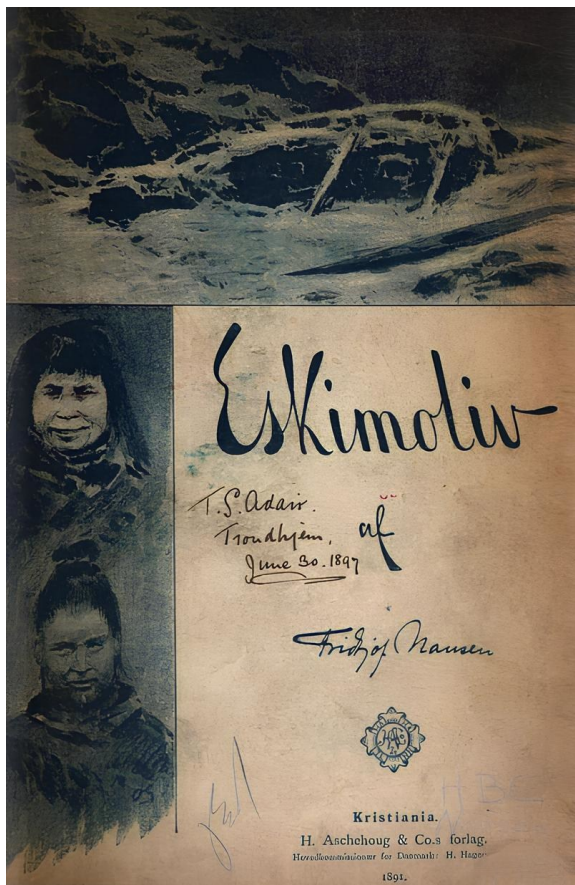 Eskimoliv
T. S. Adair.
Trondhjem,
June 30. 1897
af
Fridtjof Nansen
Kristiania.
H. Aschehoug & Co.s forlag.
Hovedkommissionær for Danmark: H.
1891.